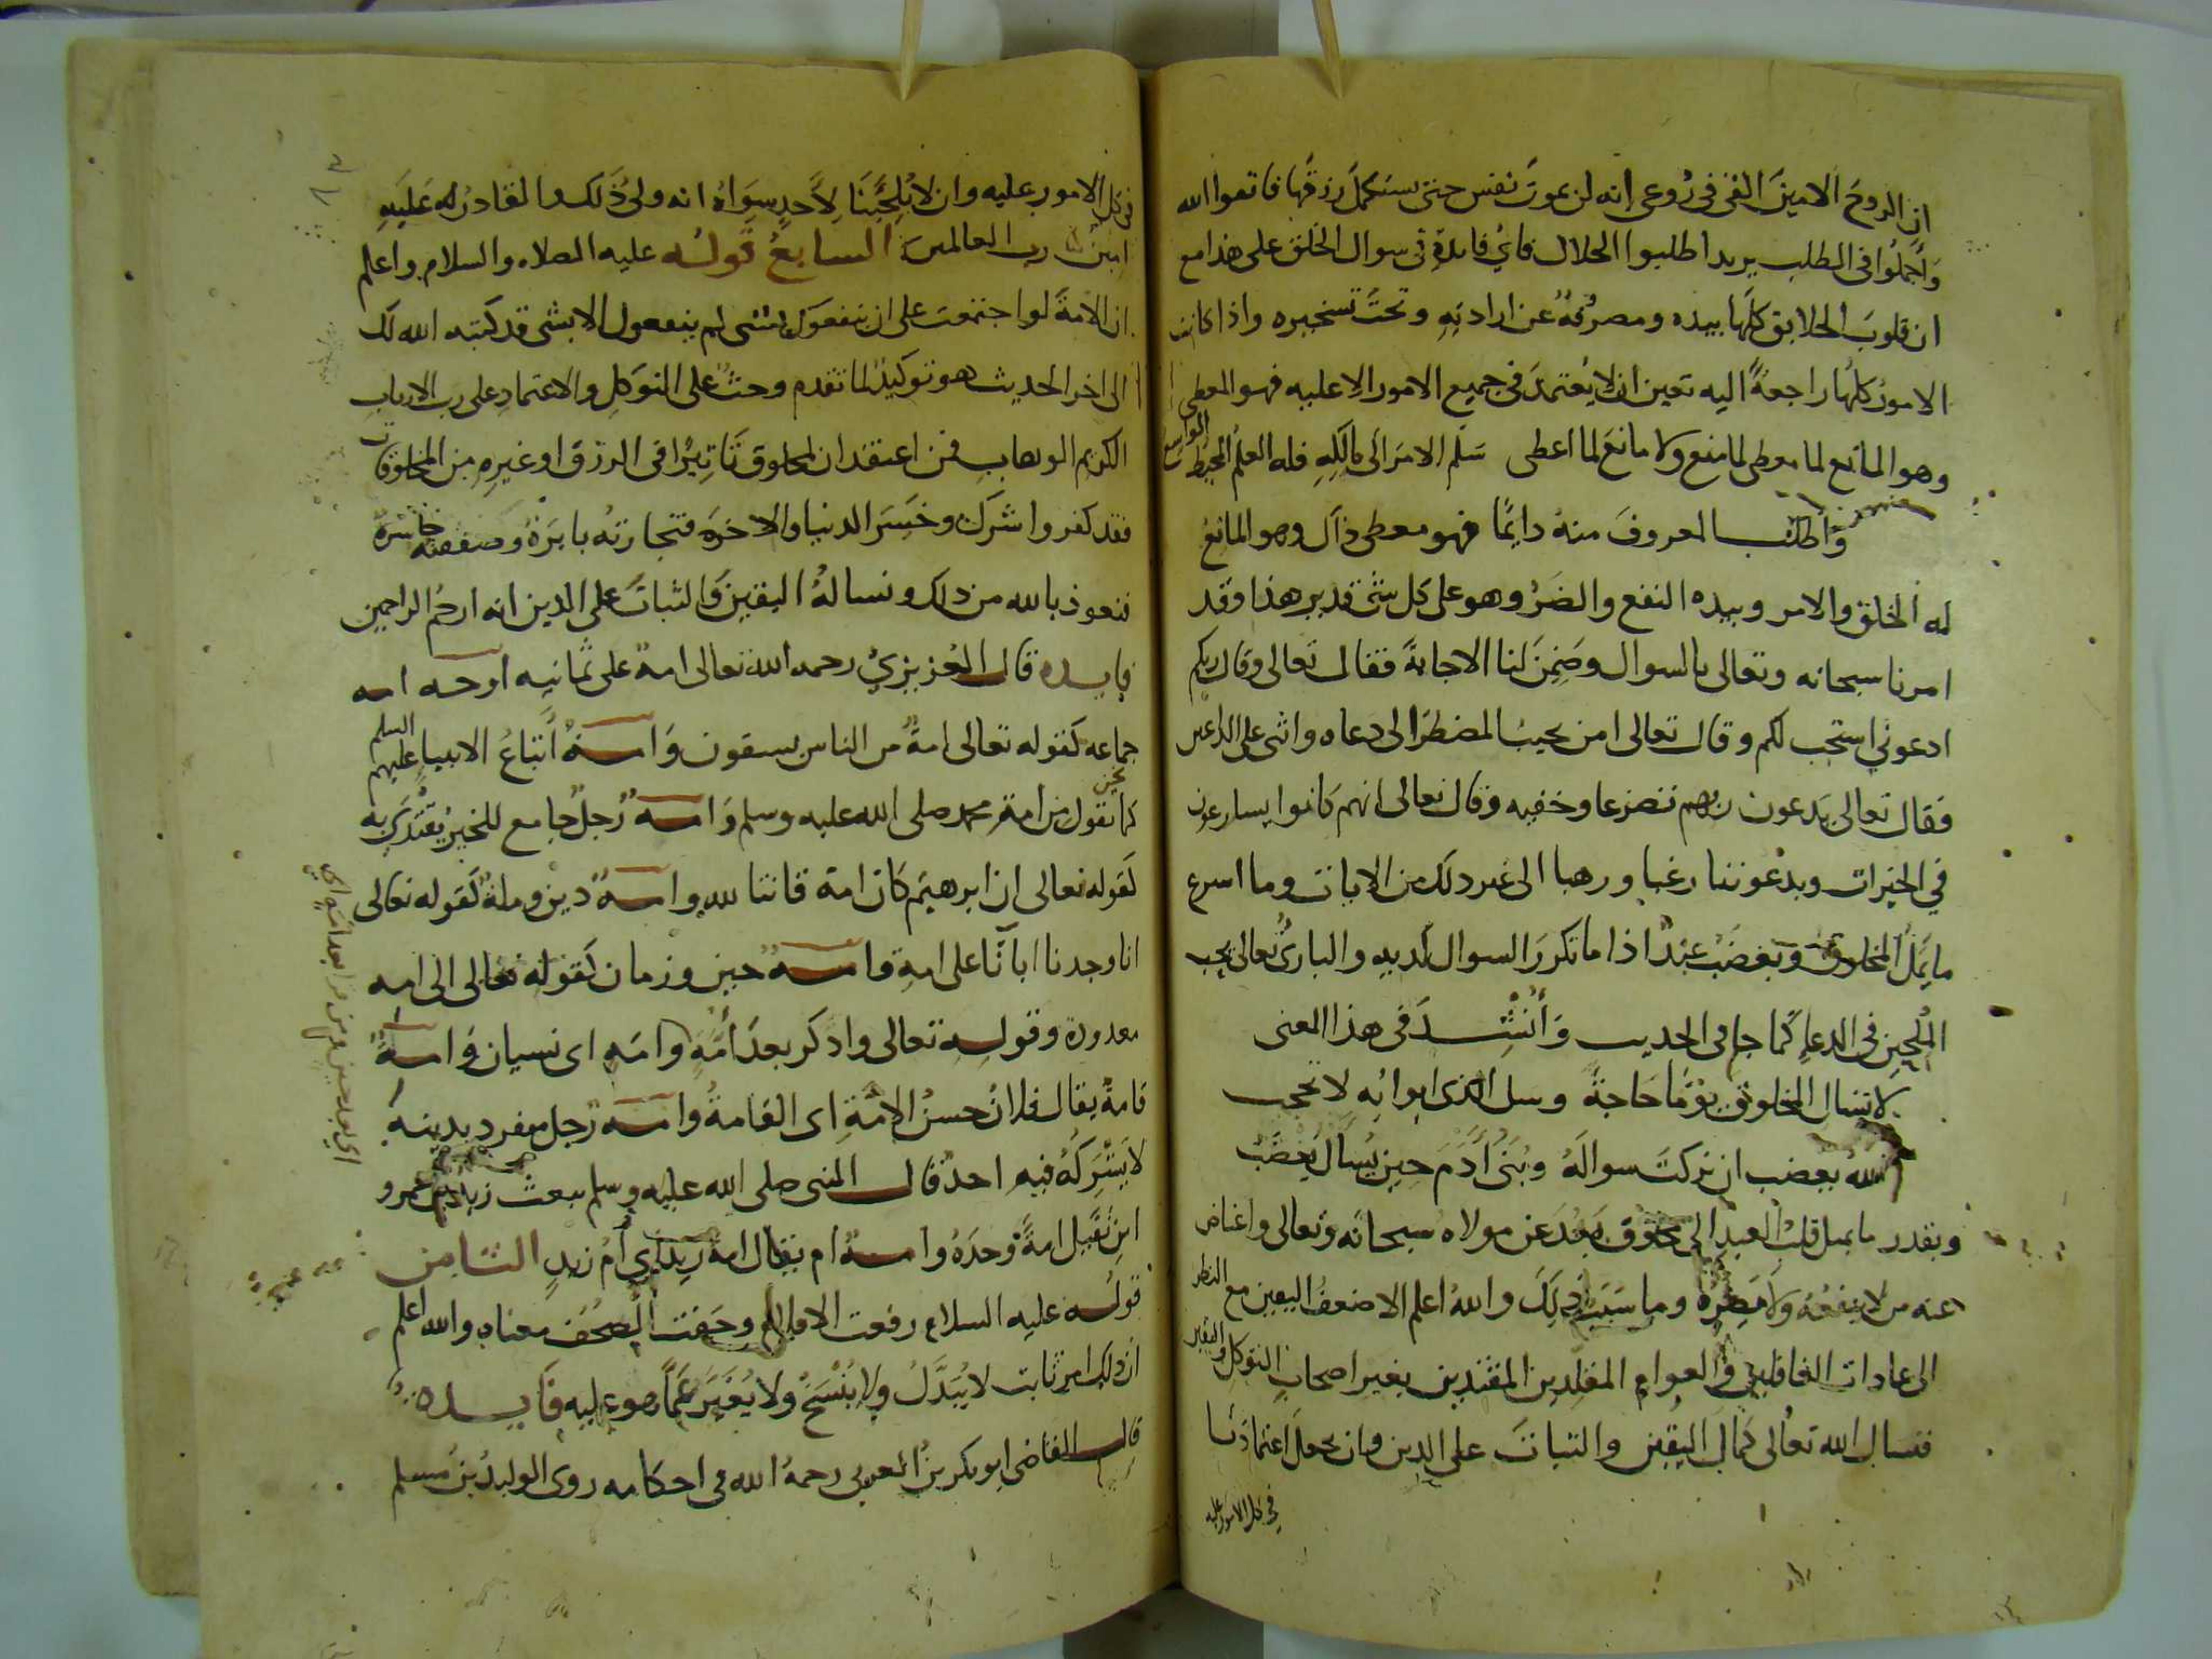 ان الروحَ الامينَ القى في رُوعى انه لن تموتَ نفس حتى تستكمل رزقها فاتقوا الله
وَاجملُوا فى الطلب يريد اطلبوا الحلال فايُ فايدةٍ فى سوال الخلق على هذا مع
ان قلوبَ الخلايق كلَها بيده ومصرّفةٌ عن ارادتِهِ وتحتَ تسخيره واذا كانت
الامورُ كلُها راجعةً اليه تعين ان لا يُعتمدَ فى جميع الامور الا عليه فهو المعطى
وهو المانع لما معطى لما منع ولا مانعَ لما اعطى سَلّم الامرَ الى مالكِهِ فله العلمُ المحيط الواسع
وَاطلب المعروفَ منهُ دايمًا فهو معطى ذاك وهو المانعُ
له الخلق والامر وبيده النفع والضَرُ وهو على كل شى قدير هذا وقد
امرنا سبحانه وتعالى بالسوال وضَمِنَ لنا الاجابةَ فقال تعالى وقال ربكم
ادعوني استجب لكم وقال تعالى امن يجيبُ المضطرَ الى دعاه واثنى على الداعين
فقال تعالى يدعون ربهم تضرعا وخفيه وقال تعالى انهم كانوا يسارعون
في الخيرات ويدعوننا رغبا ورهبا الى غير ذلك من الايات وما اسرع
ما يَمَلُ المخلوق ويغضَبُ عبدٌ اذا ما تكررَ السوال لديه والبارىُ تعالى يحب
المُلحين فى الدعاءِ كما جا فى الحديث وَأُنْشِدَ فى هذا المعنى
لا تسال المخلوق يومًا حَاجةً وسل الذى ابوابُه لا تحجب
الله يغضب ان تركتَ سوالَهُ وبُنىُ آدَمَ حين يُسال يَغضَبُ
وبقدر ما يميل قلبُ العبد الى مخلوق يَبعُدَ عن مولاه سبحانه وتعالى واعتاض
عنه من لا ينفعُهُ ولا يضرُه وما سَبَبُ ذلِكَ واللهُ اعلم الا ضعفُ اليقين مع النظر
الى عادات الغافلين والعوام المقلدين المقتدين بغير اصحاب التوكل واليقين
فنسال الله تعالى كمال اليقين والثباتَ على الدين وان يجعل اعتمادَنا
في كل الامور عليه
فى كل الامور عليه وان لا يُلجِئنَا لاَحدٍ سِوَاهُ انه ولىُ ذَلك والقادرُ له عَليهِ
امين رب العالمين السابعُ قولُه عليه الصلاه والسلام واعلم
ان الامةَ لو اجتمعت على ان ينفعوك بشى لم ينفعوك الا بشى قد كتبَه الله لك
الى اخر الحديث هو توكيدٌ لما تقدم وحثٌ على التوكلِ والاعتمادِ على رب الاربابِ
الكريم الوهاب فمن اعتقد ان لمخلوق تَاثِيرًا فى الرزق او غيرِه من المخلوقات
فقد كفر واشرك وخَسِرَ الدنيا والاخرَه فتجارتُه بايرَةٌ وصَفقتُه خاسرَةٌ
فنعوذ بالله من ذلك ونسالهُ اليقينَ والثباتَ على الدين انه ارحُم الراحمين
فايده قال العُزيزيُ رحمه الله تعالى امةٌ على ثمانيه اوجه امه
جماعه كقوله تعالى امةٌ من الناس يسقون وَامةُ أَتباعُ الانبياءِ عليهم السلم
كما تقول نحن من امةِ محمد صلى الله عليه وسلم وَامةٌ رُجلٌ جامع للخير يُقتدَى به
كقوله تعالى ان ابرهيم كان امة قانتا لله وامةٌ دين وملةٌ كقوله تعالى
انا وجدنا اباَنا على امةٍ وامةٌ حين وزمان كقوله تعالى الى امه
معدودة وقوله تعالى وادكر بعدَ أُمَّةٍ وامَهٍ اى نسيان وَامةٌ
قامةٌ يقال فلانٌ حسنُ الاُمَّةِ اى القامةُ وامةٌ رجل منفرد بدينه
لا يَشْرَكُهُ فيه احدٌ قال النبى صلى الله عليه وسلم يبعث زيد بن عمرو
ابنِ نُفَيلِ امةً وحدَهُ وامةٌ ام يقال امةُ زيد اى أُم زيدٍ الثامن
قولُه عليه السلام رفعت الاقلام وجَفت الصُحُفُ معناه والله اعلم
ان ذلك امرٌ ثابت لا يُبَدَّلُ ولا يُنْسَخُ ولا يُغَيَّرُ عَمَّا هو عليه فَايده
قال القاضى ابو بكر بنُ العربى رحمهُ الله فى احكامه روى الوليدُ بن مسلم